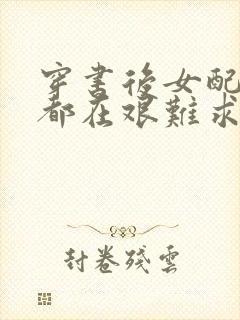 穿書後女配
都在艰難求
封卷殘雲